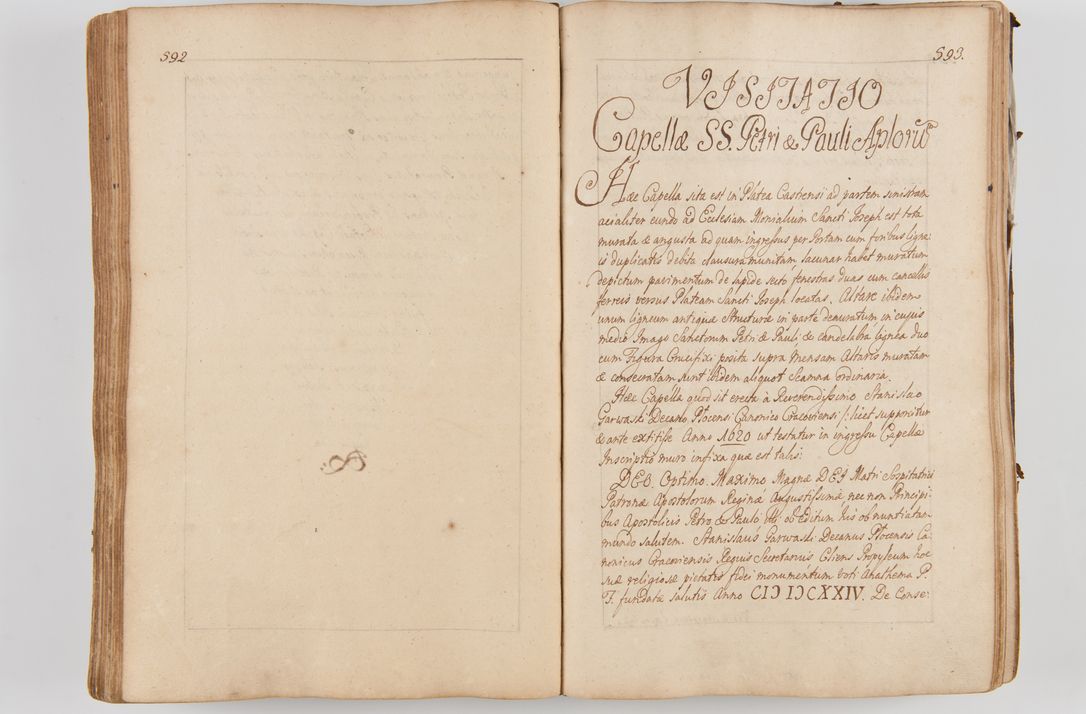 592
593.
VISITATIO
Capellæ SS. Petri & Pauli Aplorũ
Hæc Capella sita est in Platea Castrensi ad partem sinistram
eundo ad Ecclesiam Monialium Sancti Joseph est tota
murata & angusta ad quam ingressus per Portam cum foribus ligne:
is duplicatis debita clausura munitam lacunar habet muratum
depictum pavimentum de lapide secto fenestras duas cum cancellis
ferreis versus Plateam Sancti Joseph locatas. Altare ibidem
unum ligneum antiquæ Structuræ in parte deauratum in cujus
medio Imago Sanctorum Petri & Pauli, & candelabra lignea duo
cum Figura Crucifixi posita supra Mensam Altaris muratam
& consecratam sunt ibidem aliquot Scamna ordinaria.
Hæc Capella quod sit erecta à Reverendissimo Stanislao
Garwaski Decano Plocensi Canonico Cracoviensi /: licet supponitur
& ante extitisse Anno 1620 ut testatur in ingressu Capellæ
Inscriptio muro infixa quæ est talis:
DEO. Optimo. Maximo Magnæ DEI Matri Sospitatrici
Patronæ Apostolorum Reginæ Augustissimæ nec non Principi:
bus Apostolicis Petro & Paulo ob editum his ob nuntiatam
mundo salutem. Stanislaus Garwaski Decanus Plocensis Ca:
nonicus Cracoviensis Regius Secretarius Cliens Propyleum hoc
suæ religiosæ pietatis fidei monumentum voti Anathema P.
F. fundatæ salutis Anno CIƆ IƆCXXIV. De Conse: